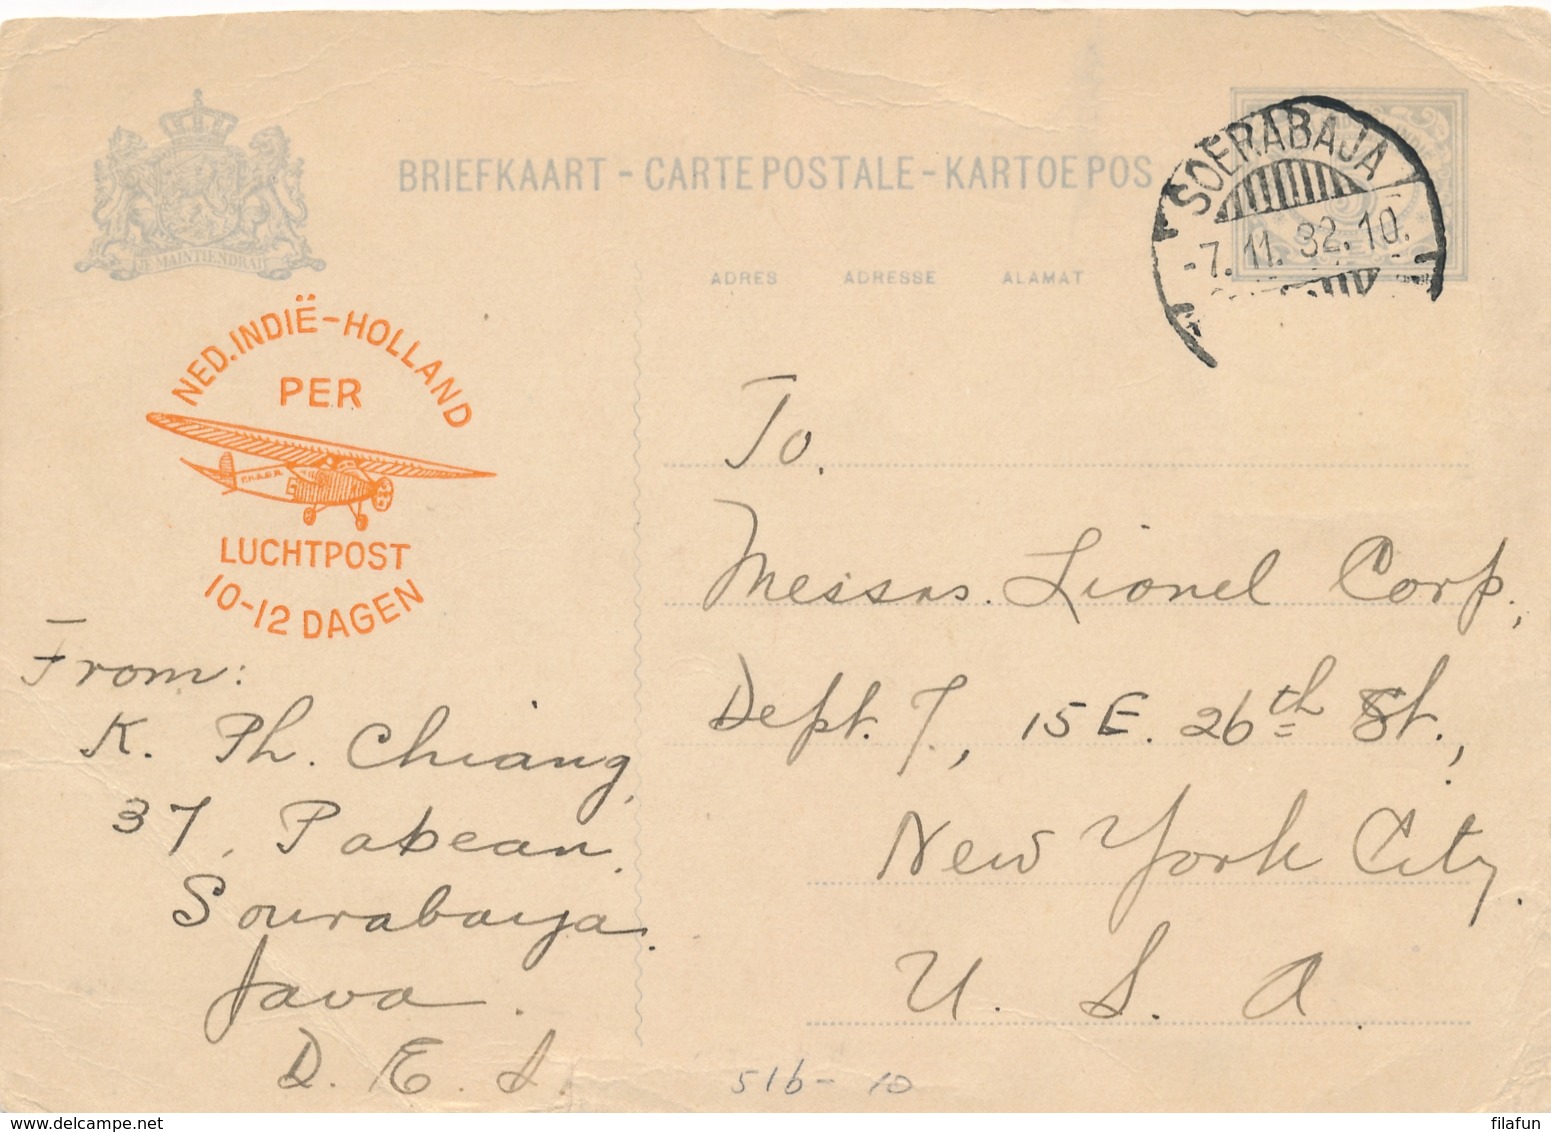 BRIEFKAART - CARTE POSTALE - KARTOE POS
SOERABAJA
-7.11.32.10.
JE MAINTIENDRAI
ADRES ADRESSE ALAMAT
NED. INDIË-HOLLAND
PER
LUCHTPOST
10-12 DAGEN
To.
Messrs. Lionel Corp.,
Dept. 7, 15 E. 26th St.,
New York City.
U. S. A.
From:
K. Ph. Chiang,
37, Pabean.
Sourabaya.
Java.
D. E. I.
51b - 10
delcampe.net
filafun